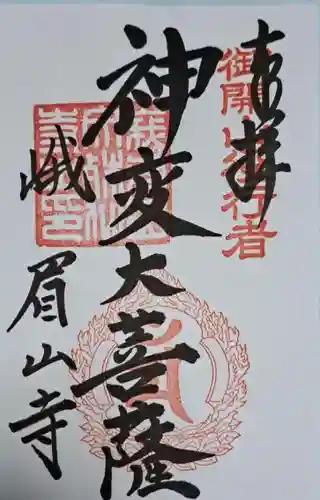 奉拝
御開山役行者
神変大菩薩
峨眉山寺